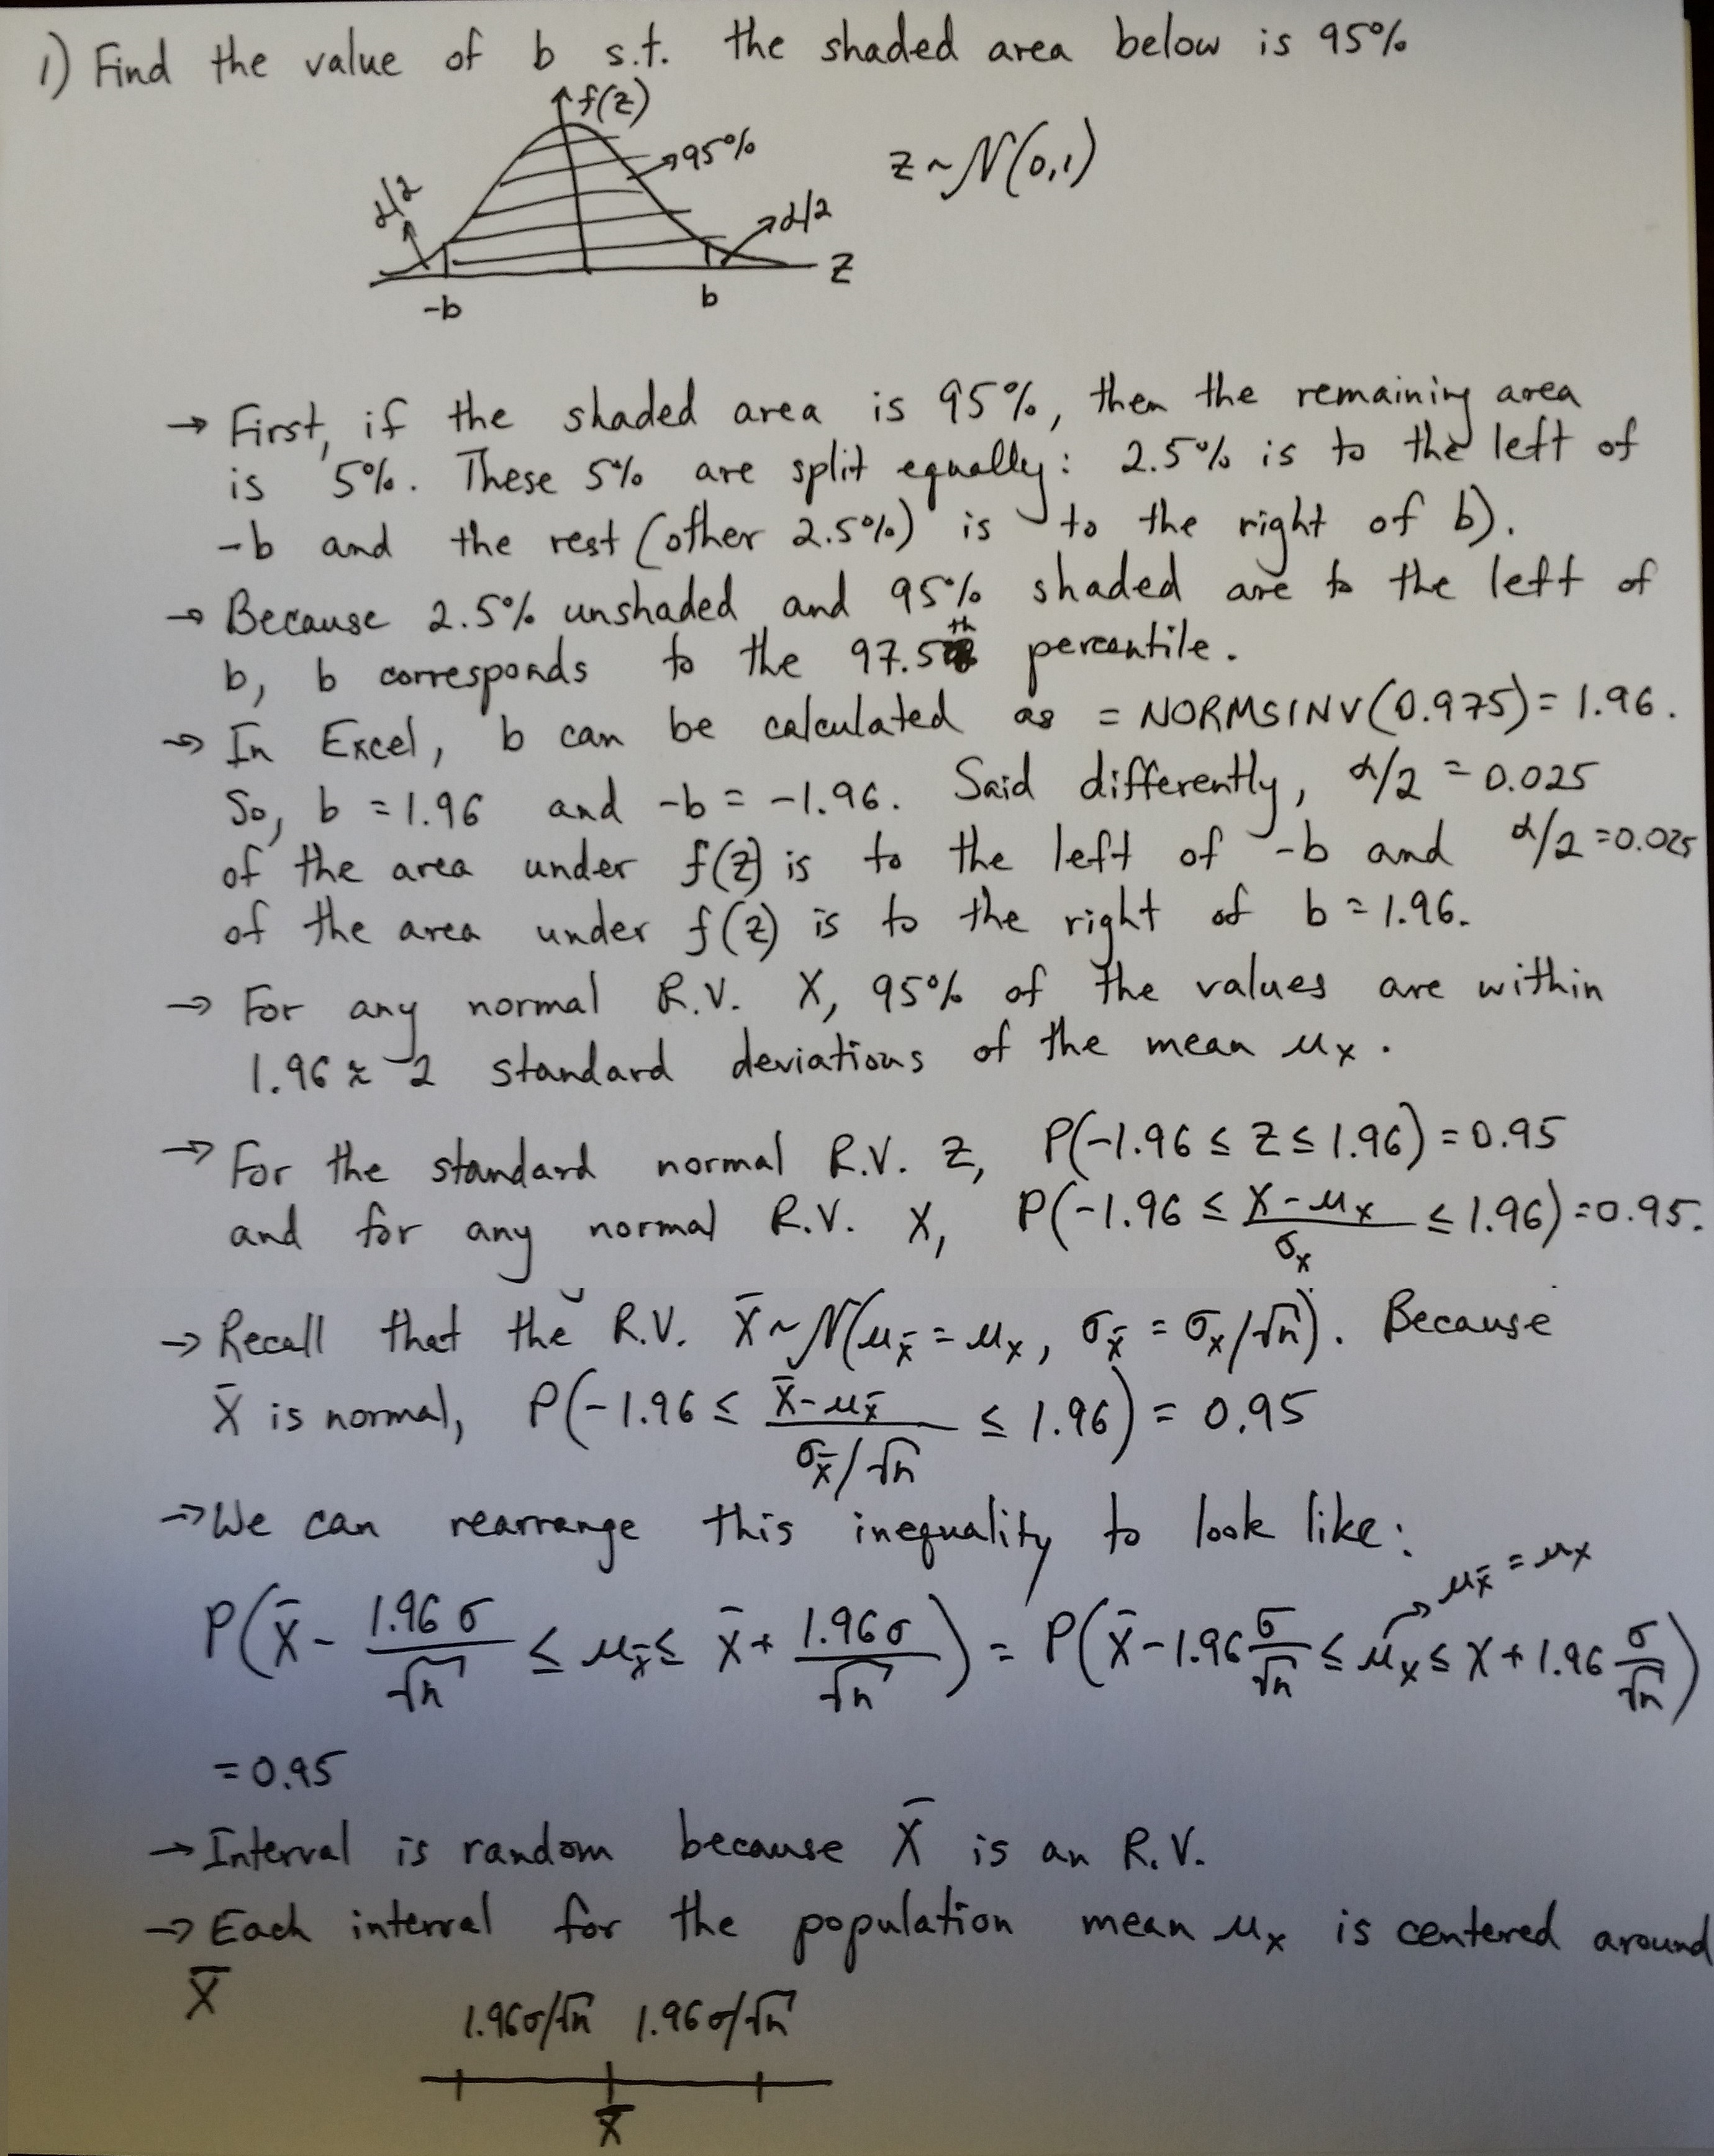 1) Find the value of b s.t. the shaded area below is 95%
f(z)
95%
z ~ N(0,1)
α/2
α/2
z
-b
b
→ First, if the shaded area is 95%, then the remaining area
is 5%. These 5% are split equally: 2.5% is to the left of
-b and the rest (other 2.5%) is to the right of b).
→ Because 2.5% unshaded and 95% shaded are to the left of
b, b corresponds to the 97.5th percentile.
→ In Excel, b can be calculated as = NORMSINV(0.975) = 1.96.
So, b = 1.96 and -b = -1.96. Said differently, α/2 = 0.025
of the area under f(z) is to the left of -b and α/2 = 0.025
of the area under f(z) is to the right of b = 1.96.
→ For any normal R.V. X, 95% of the values are within
1.96 ≈ 2 standard deviations of the mean μx.
→ For the standard normal R.V. z, P(-1.96 ≤ z ≤ 1.96) = 0.95
and for any normal R.V. X, P(-1.96 ≤ (X-μx)/σx ≤ 1.96) = 0.95.
→ Recall that the R.V. X̄ ~ N(μx̄ = μx, σx̄ = σx/√n). Because
X̄ is normal, P(-1.96 ≤ (X̄-μx̄)/(σx̄/√n) ≤ 1.96) = 0.95
→ We can rearrange this inequality to look like:
μx̄ = μx
P(X̄ - 1.96σ/√n ≤ μx̄ ≤ X̄ + 1.96σ/√n) = P(X̄ - 1.96 σ/√n ≤ μx ≤ X + 1.96 σ/√n)
= 0.95
→ Interval is random because X̄ is an R.V.
→ Each interval for the population mean μx is centered around
X̄
1.96σ/√n 1.96σ/√n
X̄